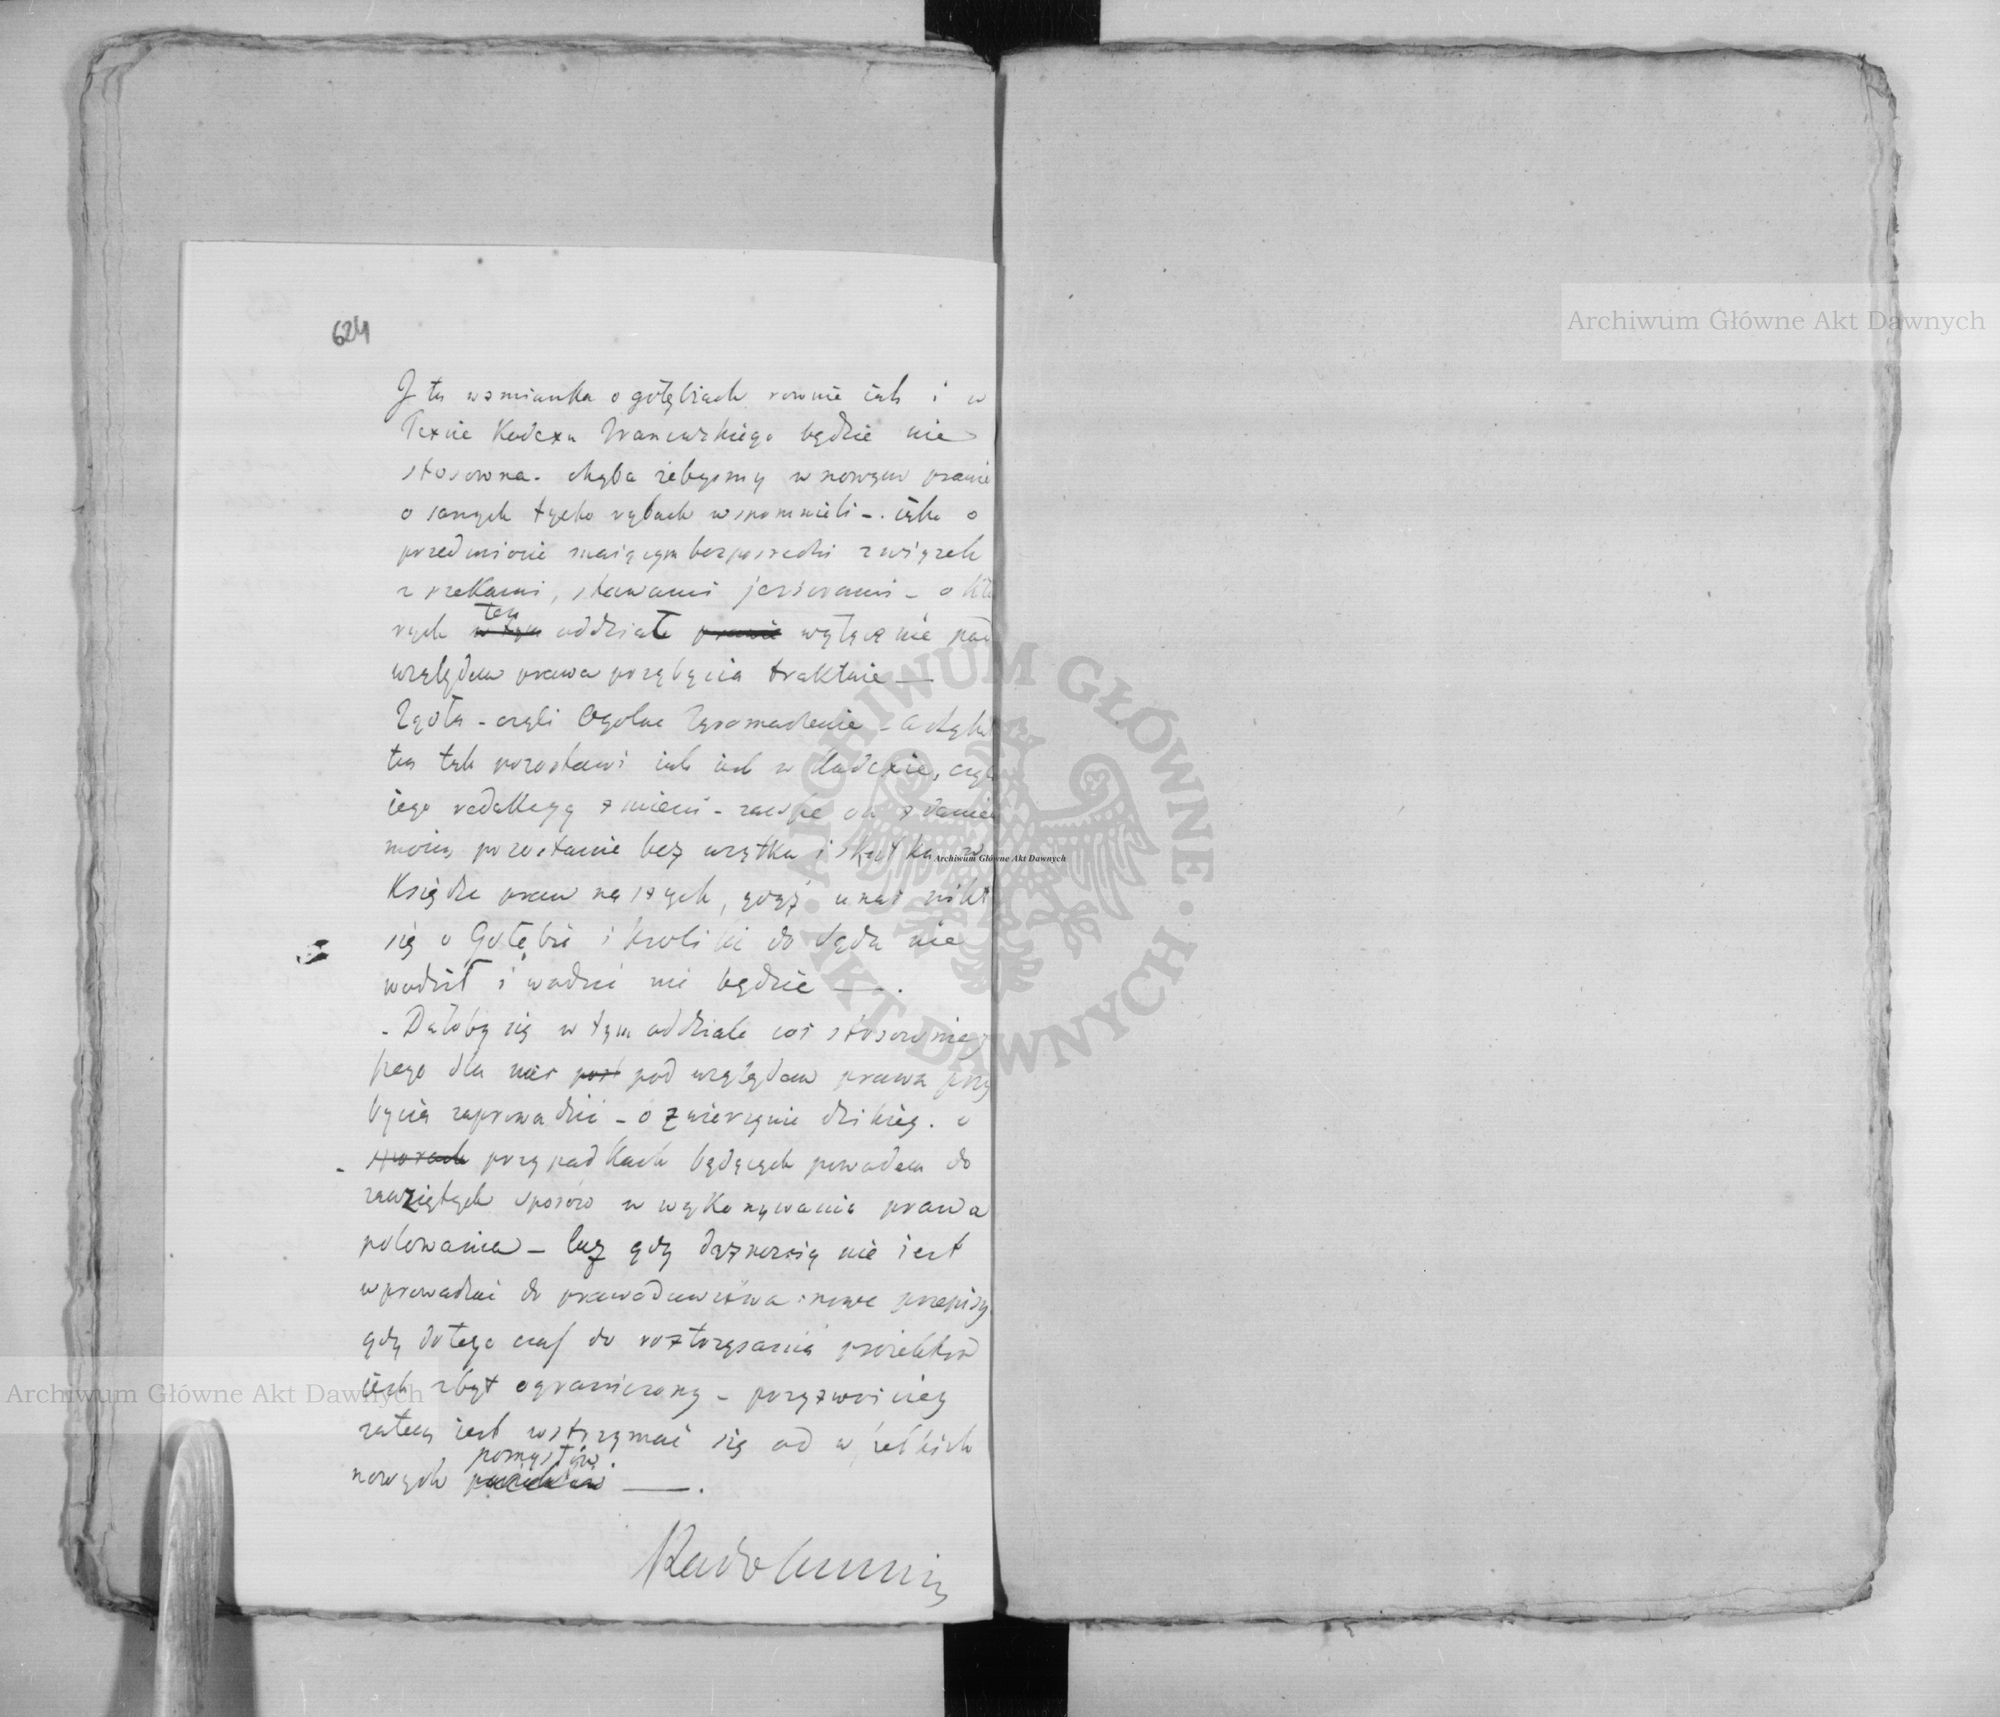 624
J ta wzmianka o gołębiach rownie iak i w
Texcie Kodexu Francuzkiego będzie nie
stosowna - chyba żebyśmy w nowym prawie
o samych tylko rybach wspomnieli - iako o
przedmiocie maiącym bezpośredni związek
z rzekami, stawami jeziorami - o któ
rych w tym ten oddziale prawie wyłącznie pod
względem prawa przybycia traktuie —
Zgoła - czyli Ogolne Zgromadzenie - Artykuł
ten tak pozostawi iak iest w Kodexie, czyli
iego redakcyą zmieni - zawsze on zdaniem
moim pozostanie bez użytku i skutku w
Księdze praw naszych, gdyż u nas nikt
się o Gołębie i kroliki do Sądu nie
wodził i wodzić nie będzie — .
- Dałoby się w tym oddziale coś stosowniey
szego dla nas pod względem prawa przy
bycia zaprowadzić - o zwierzynie dzikiey. o
sporach przypadkach będących powodem do
zawziętych sporów w wykonywaniu prawa
polowania - lecz gdy dążnością nie iest
wprowadzać do prawodawstwa nowe przepisy
gdy do tego czas do roztrząsania proiektów
iest zbyt ograniczony - przyzwoiciey
zatem iest wstrzymać się od wszelkich
nowych pomysłów — .
Archiwum Główne Akt Dawnych
Archiwum Główne Akt Dawnych
Archiwum Główne Akt Dawnych
ARCHIWUM GŁÓWNE · AKT DAWNYCH ·